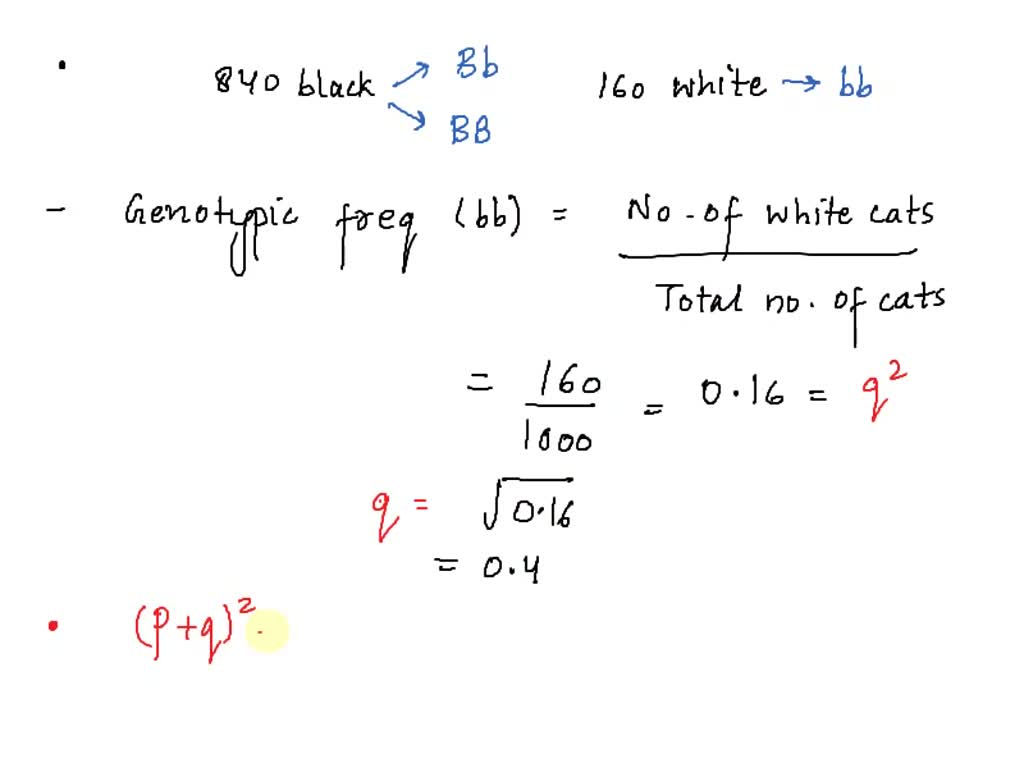 • 840 black → Bb 160 white → bb
→ BB
- Genotypic freq (bb) = No. of white cats
Total no. of cats
= 160 = 0.16 = q²
1000
q = √0.16
= 0.4
• (p+q)²